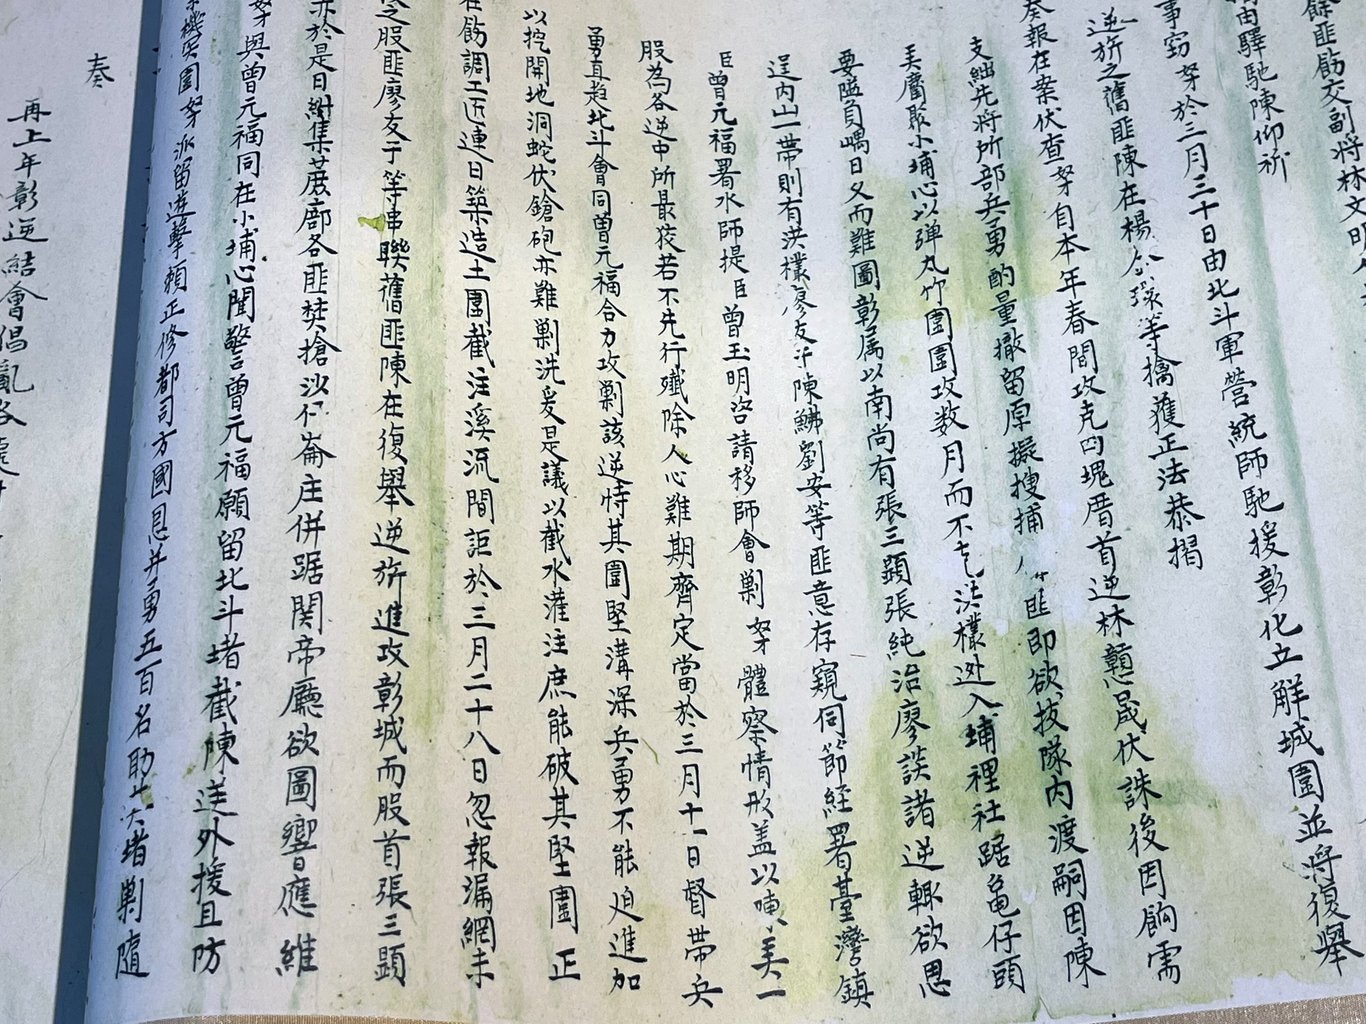 餘匪飭交副將林文明
由驛馳陳仰祈
事竊弩於三月三十日由北斗軍營統師馳援彰化立解城圍並將復舉
逆旂之舊匪陳在楊等擒獲正法恭摺
奏報在案伏查弩自本年春間攻克四塊厝首逆林戇晟伏誅後因餉需
支絀先將所部兵勇酌量撤留原擬搜捕匪即欲拔隊內渡嗣因陳
美麕聚小埔心以弹丸竹圍圍攻数月而不克洪欉迯入埔裡社踞龟仔頭
要隘負嵎日久而難圖彰属以南尚有張三顕張純治廖談諸逆輙欲思
逞內山一帶則有洪欉廖友于陳鯡劉安等匪意存窺伺節經署臺灣鎮
臣曾元福署水師提臣曾玉明咨請移師會剿弩體察情形盖以陳美一
股為各逆中所最狡若不先行殲除人心難期齊定當於三月十一日督帶兵
勇直趋北斗會同曾元福合力攻剿該逆恃其圍堅溝深兵勇不能迫進加
以挖開地洞蛇伏鎗砲亦難剿洗爰是議以截水灌注庶能破其堅圍正
在飭調工匠連日築造土圍截注溪流間詎於三月二十八日忽報漏網未
之股匪廖友于等串聯舊匪陳在復舉逆旂進攻彰城而股首張三顕
亦於是日糾集蔗廍各匪焚搶沙仔崙庄併踞関帝廳欲圖響應維
弩與曾元福同在小埔心聞警曾元福願留北斗堵截陳逆外援且防
機突圍弩派留遊擊賴正修都司方國恩并勇五百名助堵剿隨
奏
再上年彰逆結會倡亂各